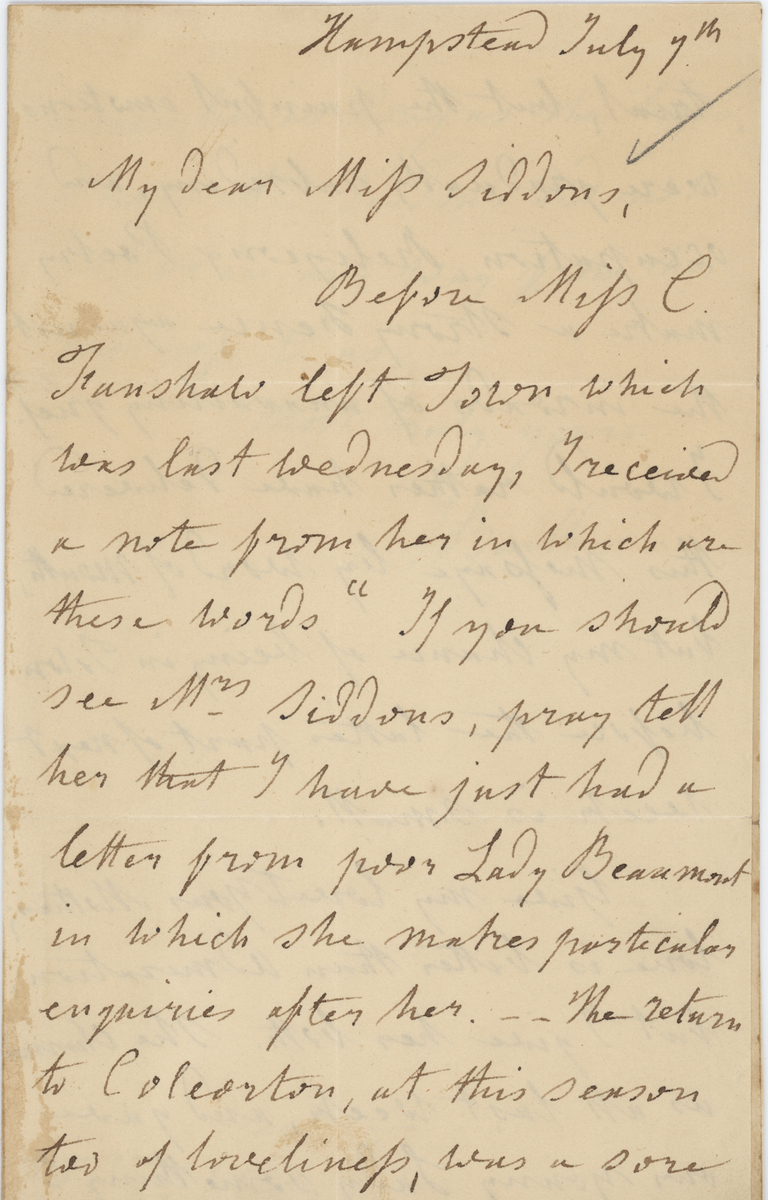 Hampstead July 7th
My dear Miss Siddons,
Before Miss C.
Fanshaw left Town which
was last Wednesday, I received
a note from her in which are
these words " If you should
see Mrs Siddons, pray tell
her that I have just had a
letter from poor Lady Beaumont
in which she makes particular
enquiries after her. -- The return
to Coleorton, at this season
too of loveliness, was a sore